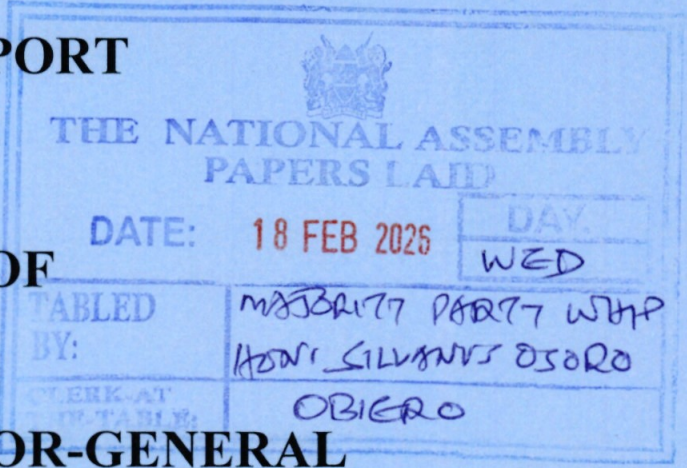 PORT
THE NATIONAL ASSEMBLY
PAPERS LAID
DATE: 18 FEB 2026 DAY.
WED
OF
TABLED BY: MAJORITY PARTY WHIP
HON. SILVANUS OSORO
CLERK-AT THE-TABLE: OBIERO
OR-GENERAL